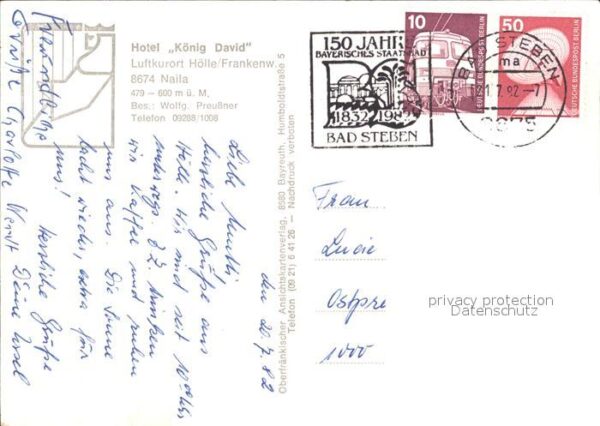 Hotel „König David"
Luftkurort Hölle/Frankenw.
8674 Naila
479 – 600 m ü. M,
Bes.: Wolfg. Preußner
Telefon 09288/1008
150 JAHRE
BAYERISCHES STAATSBAD
1832 198
BAD STEBEN
10
DEUTSCHE BUNDESPOST BERLIN
50
DEUTSCHE BUNDESPOST BERLIN
BAD STEBEN
ma
21.7.82 -7
8675
Oberfränkischer Ansichtskartenverlag, 8580 Bayreuth, Humboldtstraße 5
Telefon (09 21) 6 41 26 — Nachdruck verboten
den 20.7.82
Liebe Mutti
herzliche Grüße aus
Hölle. Wir sind seit 10 Uhr
unterwegs. z.Z. trinken
wir Kaffee und ruhen
uns aus. Die Sonne
lacht wieder, extra für
uns! Herzliche Grüße
Deine
Grüße Charlotte
Frau
Lucie
Ostpre
1000
privacy protection
Datenschutz